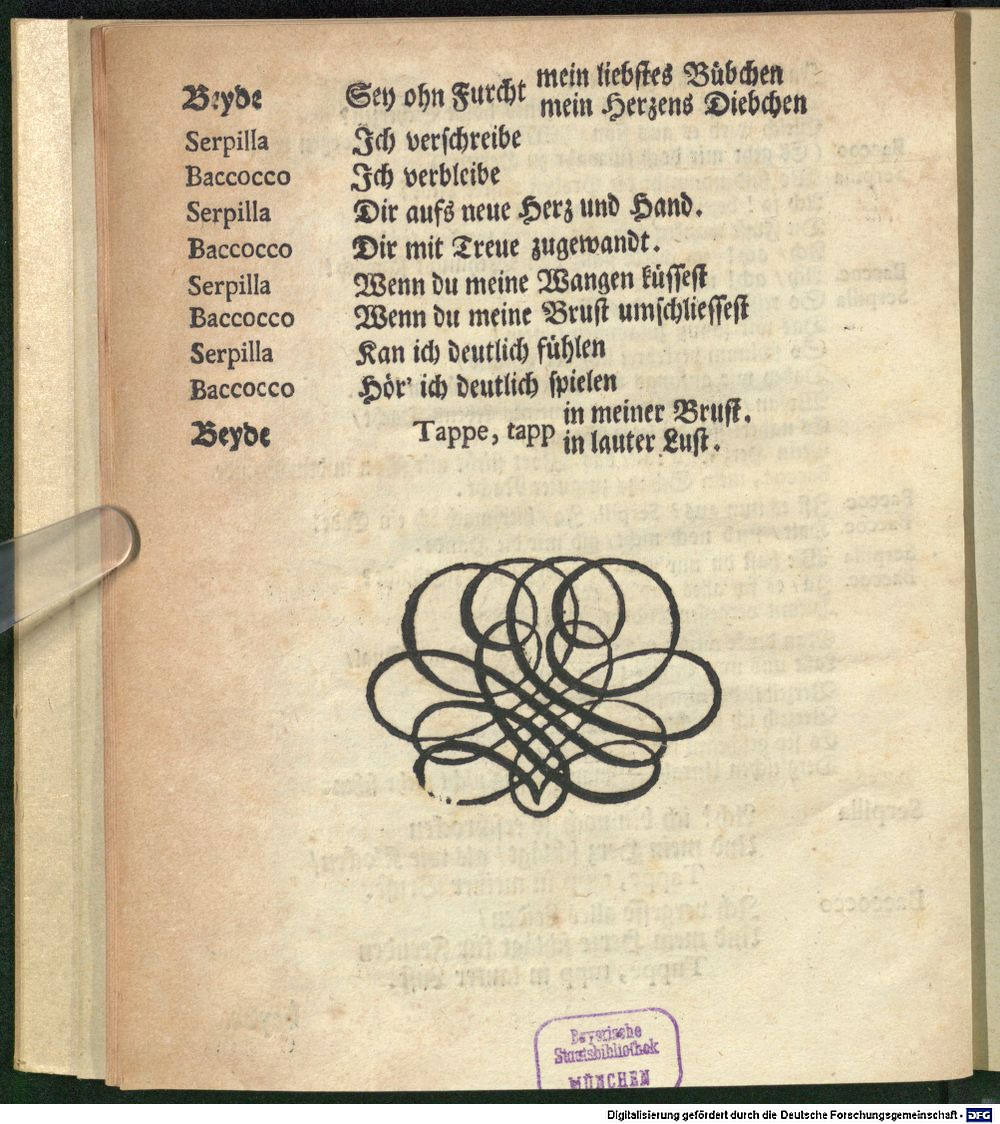 Beyde Sey ohn Furcht mein liebstes Bübchen
mein Herzens Diebchen
Serpilla Ich verschreibe
Baccocco Ich verbleibe
Serpilla Dir aufs neue Herz und Hand.
Baccocco Dir mit Treue zugewandt.
Serpilla Wenn du meine Wangen küssest
Baccocco Wenn du meine Brust umschliessest
Serpilla Kan ich deutlich fühlen
Baccocco Hör' ich deutlich spielen
Beyde Tappe, tapp in meiner Brust.
in lauter Lust.
Bayerische
Staatsbibliothek
MÜNCHEN
Digitalisierung gefördert durch die Deutsche Forschungsgemeinschaft - DFG